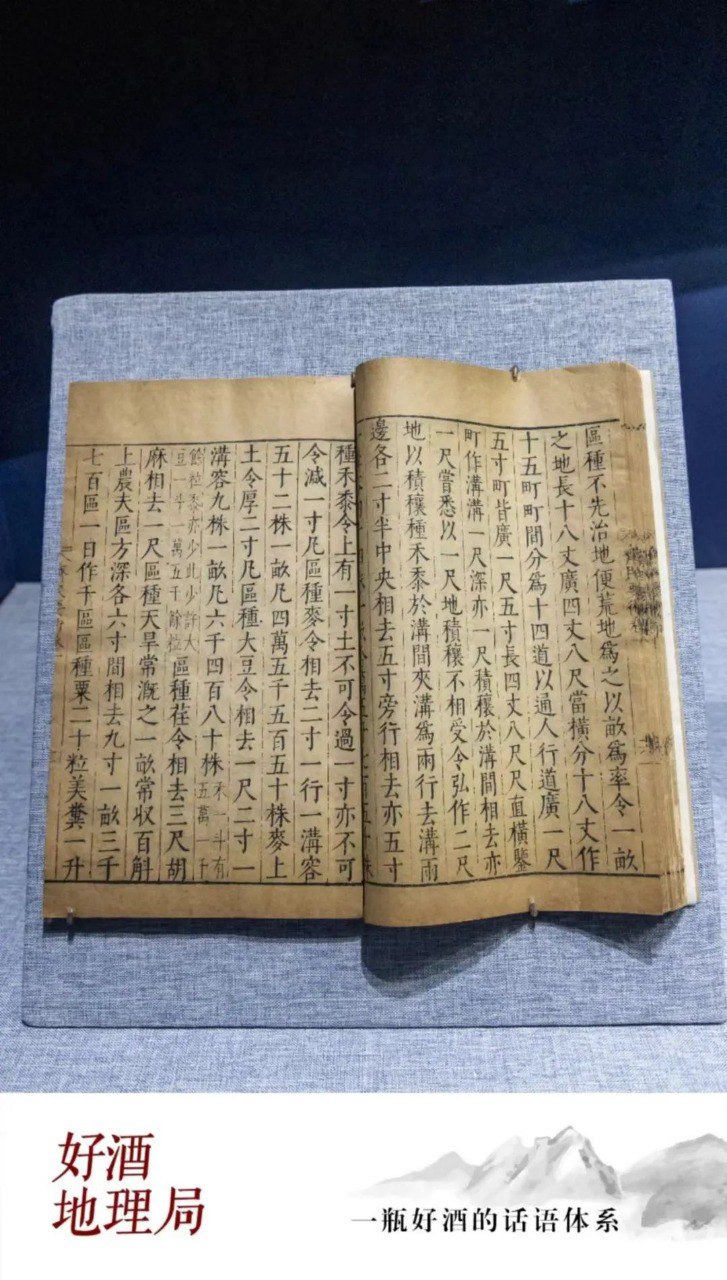 區種不先治地便荒地爲之以畝爲率令一畝
之地長十八丈廣四丈八尺當橫分十八丈作
十五町町間分爲十四道以通人行道廣一尺
五寸町皆廣一尺五寸長四丈八尺尺直橫鑿
町作溝溝一尺深亦一尺積穰於溝間相去亦
一尺嘗悉以一尺地積穰不相受令弘作二尺
地以積穰種禾黍於溝間夾溝爲兩行去溝兩
邊各二寸半中央相去五寸旁行相去亦五寸
種禾黍令上有一寸土不可令過一寸亦不可
令減一寸凡區種麥令相去二寸一行一溝容
五十二株一畝凡四萬五千五百五十株麥上
土令厚二寸凡區種大豆令相去一尺二寸一
溝容九株一畝凡六千四百八十株禾一斗有五萬一千
餘粒黍亦少此少許大豆一斗一萬五千餘粒區種荏令相去三尺胡
麻相去一尺區種天旱常溉之一畝常収百斛
上農夫區方深各六寸間相去九寸一畝三千
七百區一日作千區區種粟二十粒美糞一升
好酒
地理局
一瓶好酒的话语体系